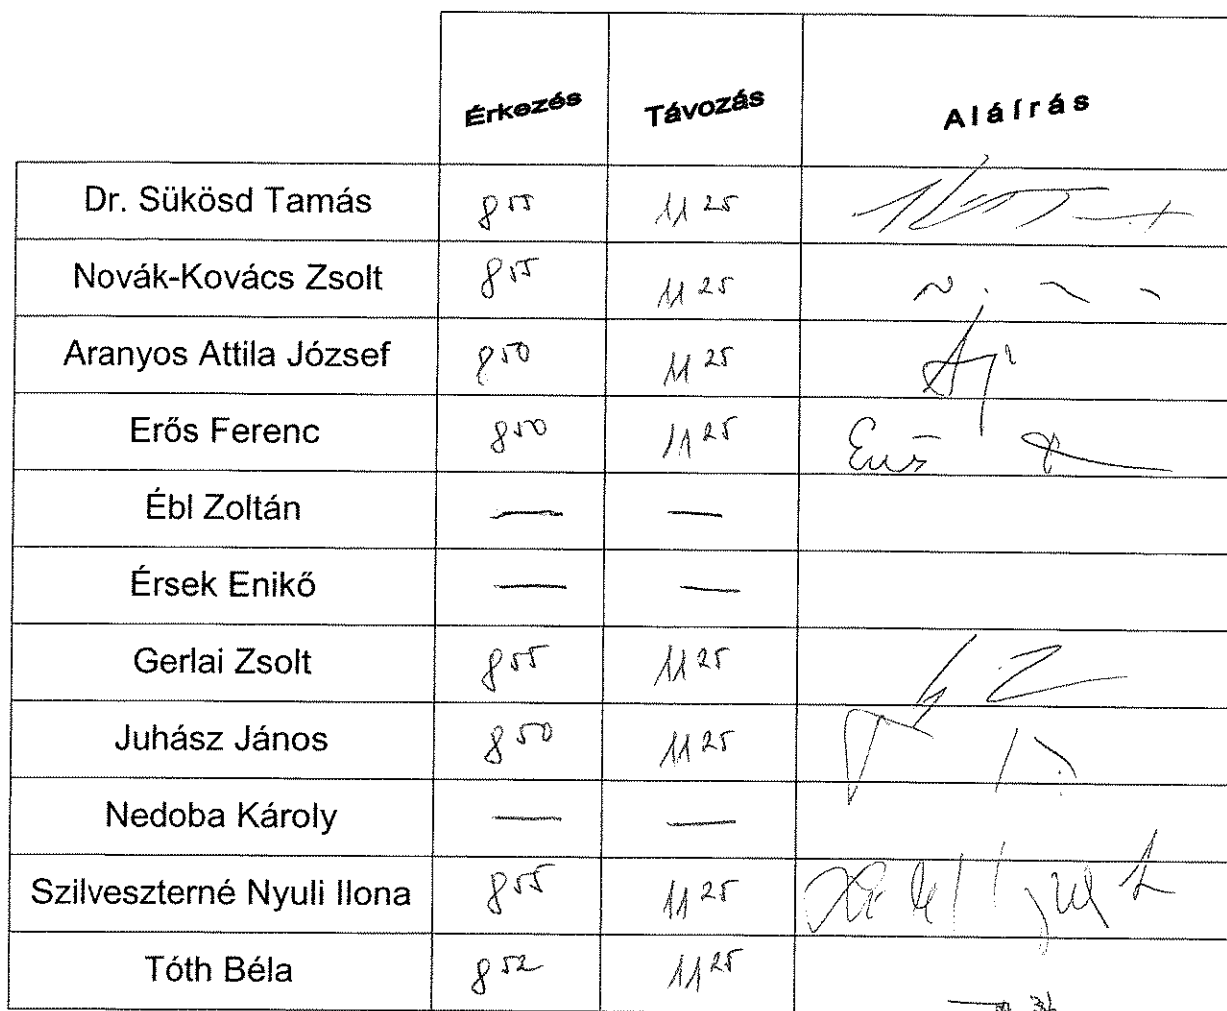 Érkezés Távozás Aláírás
Dr. Sükösd Tamás 8 55 11 25
Novák-Kovács Zsolt 8 55 11 25
Aranyos Attila József 8 50 11 25
Erős Ferenc 8 50 11 25 Erős
Ébl Zoltán — —
Érsek Enikő — —
Gerlai Zsolt 8 55 11 25
Juhász János 8 50 11 25
Nedoba Károly — —
Szilveszterné Nyuli Ilona 8 55 11 25
Tóth Béla 8 52 11 25